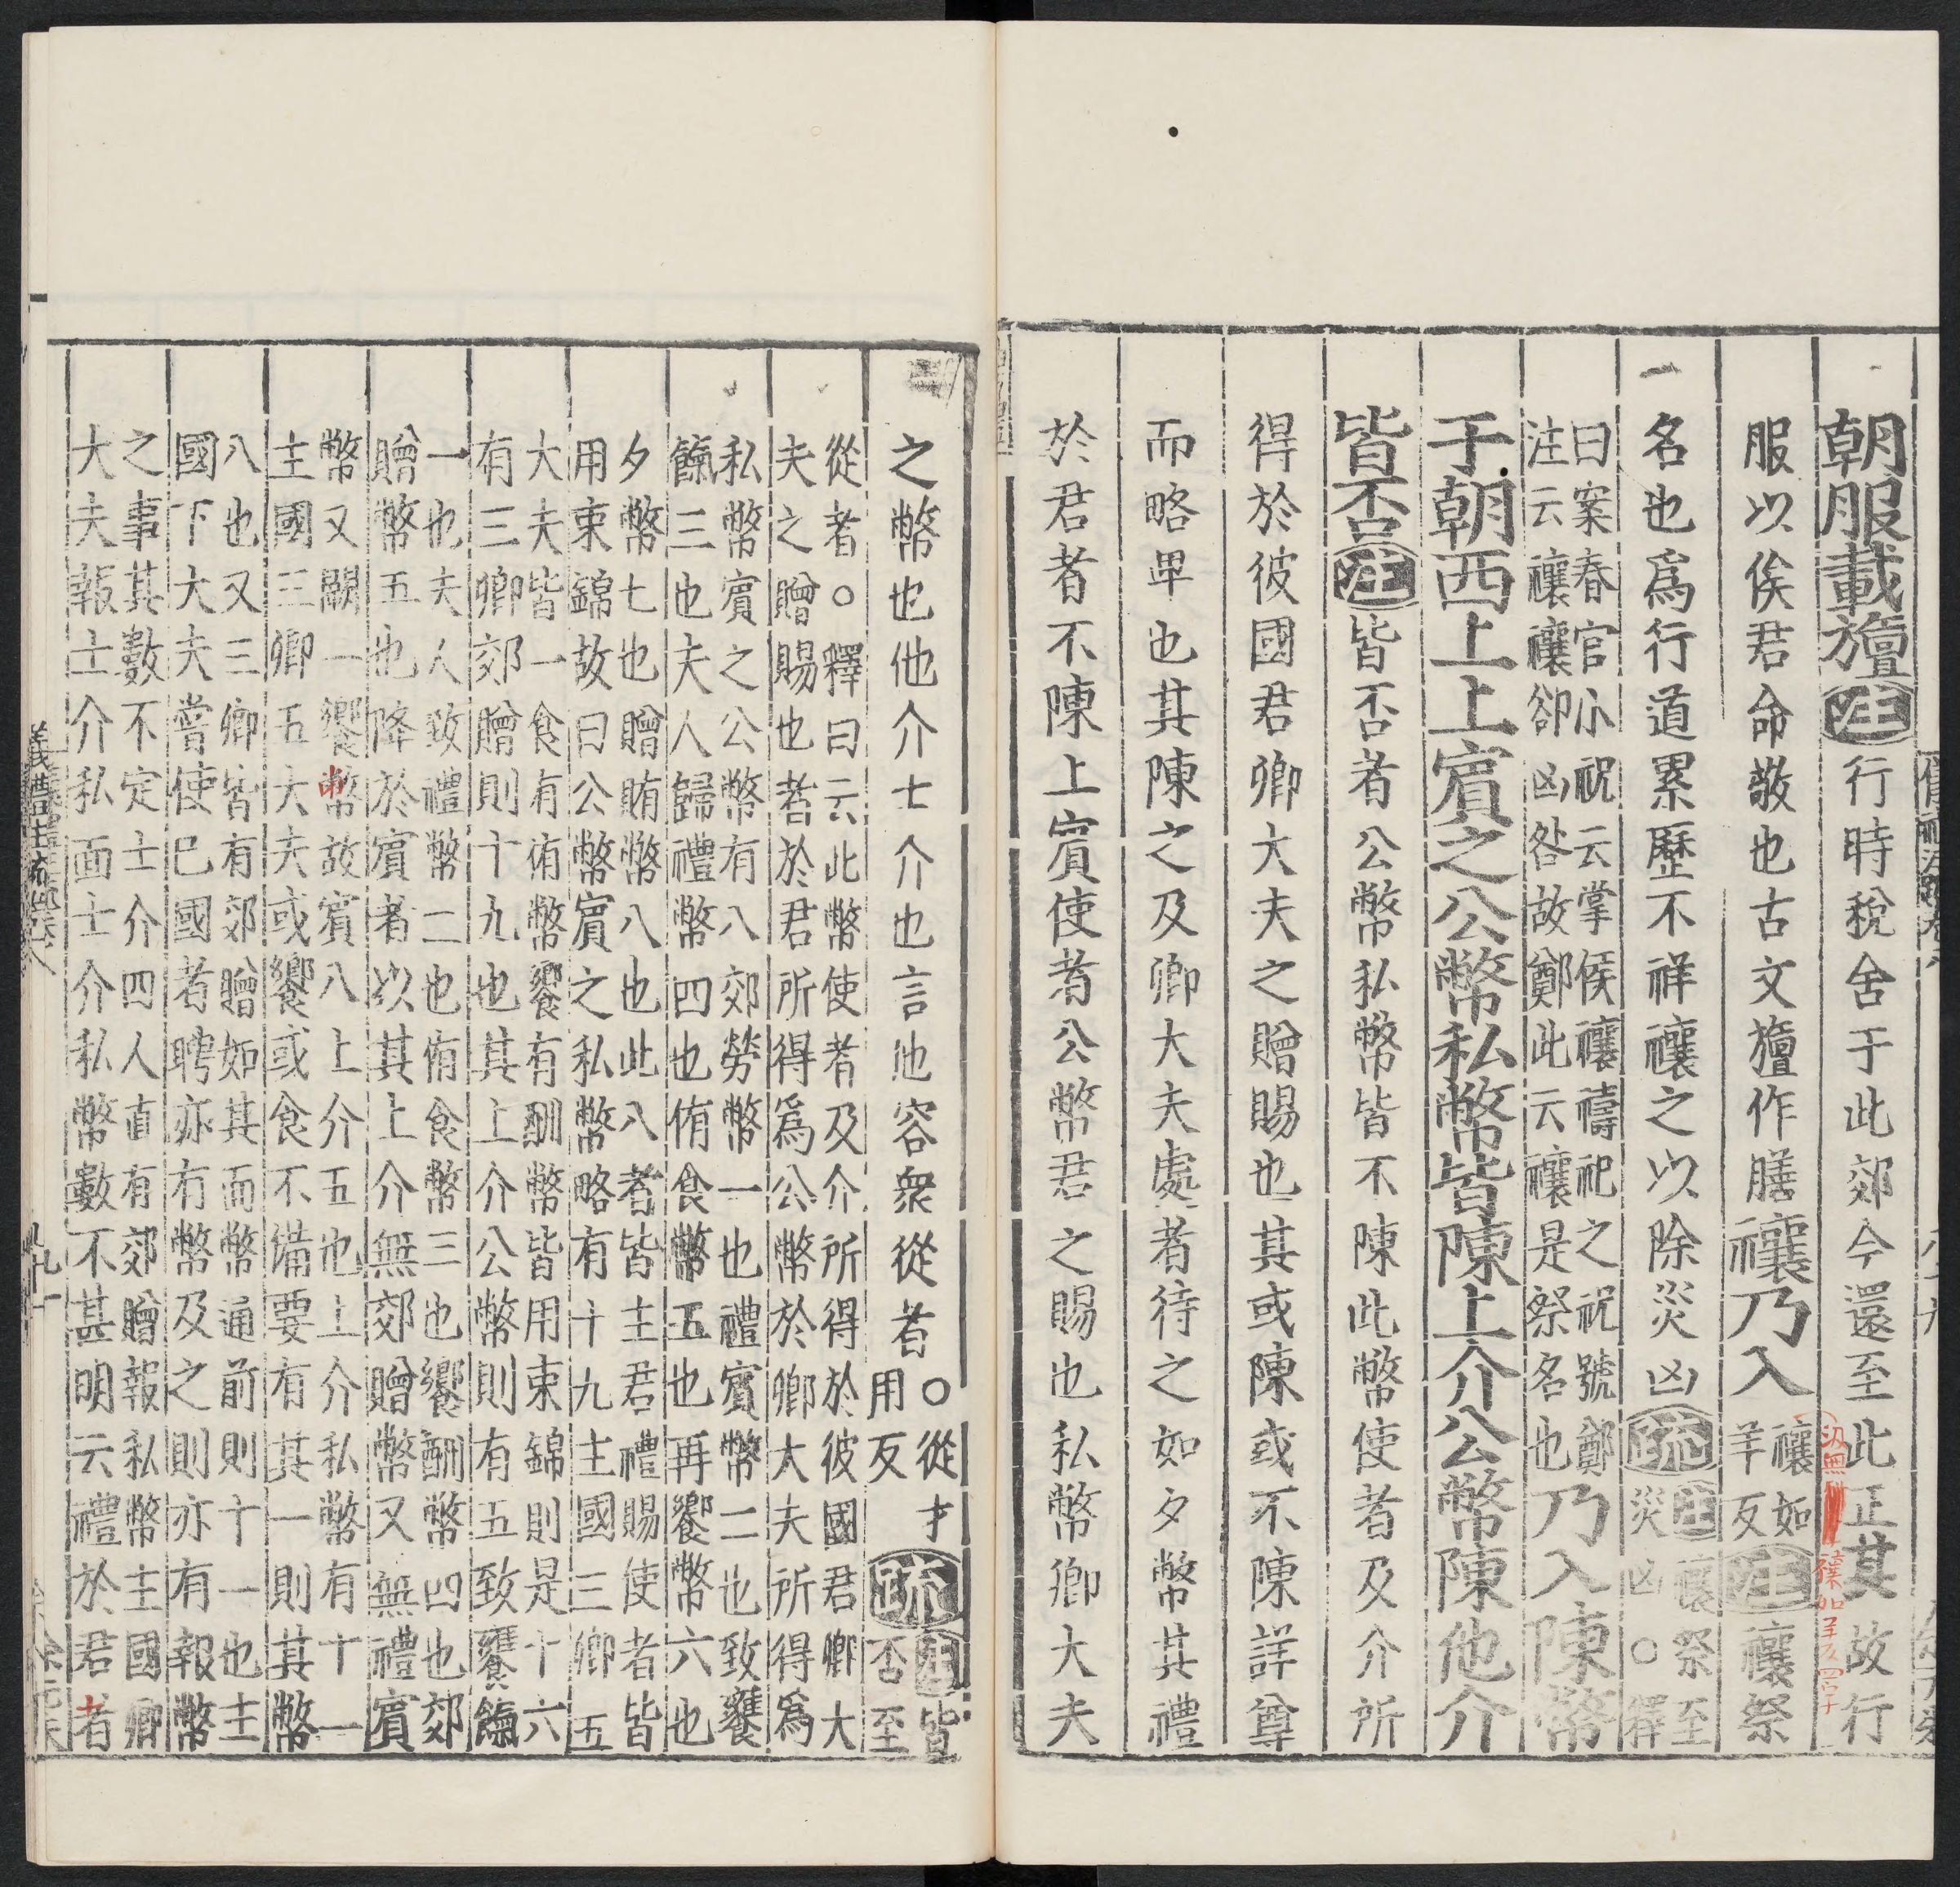 朝服載旜注行時稅舍于此郊今還至此正其故行
服以俟君命敬也古文旜作膳禳乃入禳如羊反注禳祭
名也爲行道累歷不祥禳之以除災凶疏注禳祭至災凶○釋
曰案春官小祝云掌侯禳禱祀之祝號鄭
注云禳禳卻凶咎故鄭此云禳是祭名也乃入陳幣
于朝西上上賓之公幣私幣皆陳上介公幣陳他介
皆否注皆否者公幣私幣皆不陳此幣使者及介所
得於彼國君卿大夫之贈賜也其或陳或不陳詳尊
而略卑也其陳之及卿大夫處者待之如夕幣其禮
於君者不陳上賓使者公幣君之賜也私幣卿大夫
之幣也他介士介也言他容衆從者○從才用反疏注皆否至
從者○釋曰云此幣使者及介所得於彼國君卿大
夫之贈賜也者於君所得爲公幣於卿大夫所得爲
私幣賓之公幣有八郊勞幣一也禮賓幣二也致饔
餼三也夫人歸禮幣四也侑食幣五也再饗幣六也
夕幣七也贈賄幣八也此八者皆主君禮賜使者皆
用束錦故曰公幣賓之私幣略有十九主國三卿五
大夫皆一食有侑幣饗有酬幣皆用束錦則是十六
有三卿郊贈則十九也其上介公幣則有五致饔餼
一也夫人致禮幣二也侑食幣三也饗酬幣四也郊
贈幣五也降於賓者以其上介無郊贈幣又無禮賓
幣又闕一饗幣故賓八上介五也上介私幣有十一
主國三卿五大夫或饗或食不備要有其一則其幣
八也又三卿皆有郊贈如其面幣通前則十一也主
國下大夫嘗使已國者聘亦有幣及之則亦有報幣
之事其數不定士介四人直有郊贈報私幣主國卿
大夫報士介私面士介私幣數不甚明云禮於君者